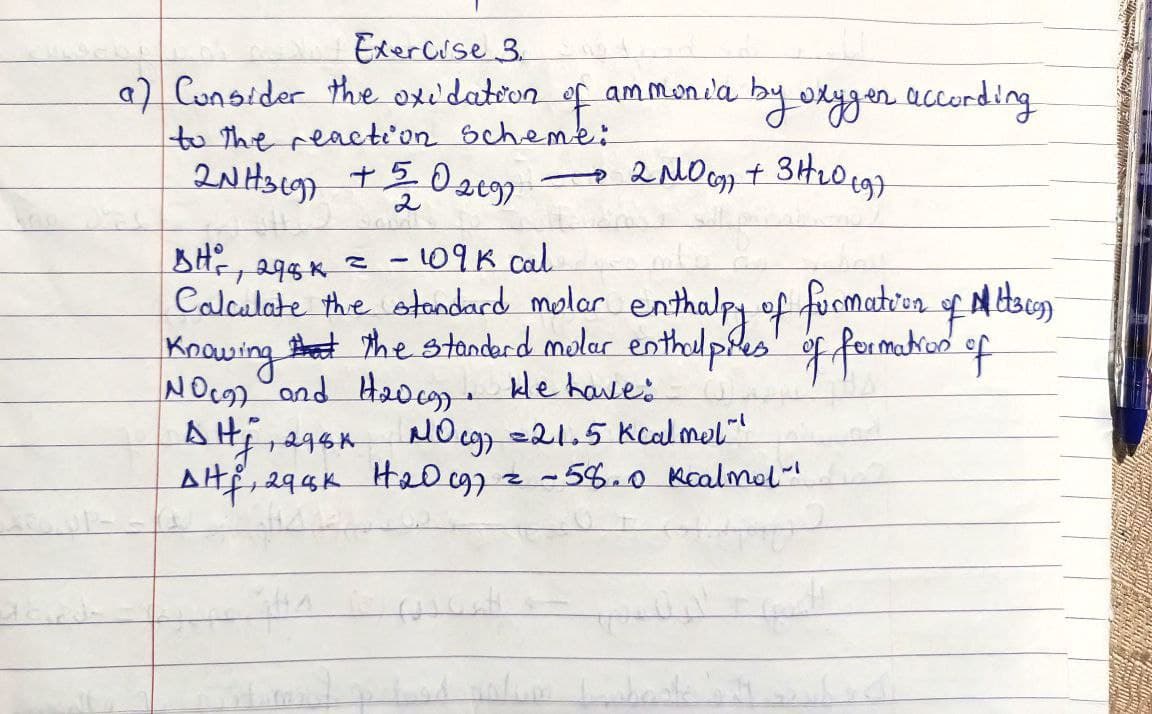 Exercise 3.
a) Consider the oxidation of ammonia by oxygen according
to the reaction scheme:
2NH3(g) + 5/2 O2(g) → 2NO(g) + 3H2O(g)
ΔH°r, 298K = -109 K cal
Calculate the standard molar enthalpy of formation of NH3(g)
Knowing the standard molar enthalpies of formation of
NO(g) and H2O(g). We have:
ΔH°f, 298K NO(g) = 21.5 Kcal mol⁻¹
ΔH°f, 298K H2O(g) = -58.0 Kcalmol⁻¹